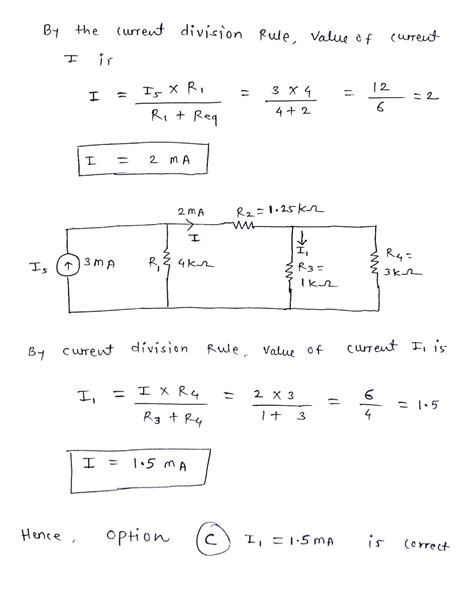 By the current division Rule, Value of current
I is
I = Is × R1 / R1 + Req = 3 × 4 / 4 + 2 = 12 / 6 = 2
I = 2 mA
2mA R2 = 1.25kΩ
I I1 R4 =
Is 3mA R1 4kΩ R3 = 3kΩ
1kΩ
By current division Rule, Value of current I1 is
I1 = I × R4 / R3 + R4 = 2 × 3 / 1 + 3 = 6 / 4 = 1.5
I = 1.5 mA
Hence, option C I1 = 1.5mA is correct